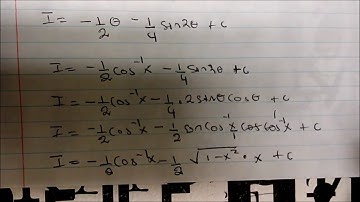 I = -1/2 θ - 1/4 sin2θ + c
I = -1/2 cos⁻¹x - 1/4 sin2θ + c
I = -1/2 cos⁻¹x - 1/4 . 2 sinθ cosθ + c
I = -1/2 cos⁻¹x - 1/2 sin cos⁻¹x cos cos⁻¹x + c
I = -1/2 cos⁻¹x - 1/2 √1-x² · x + c